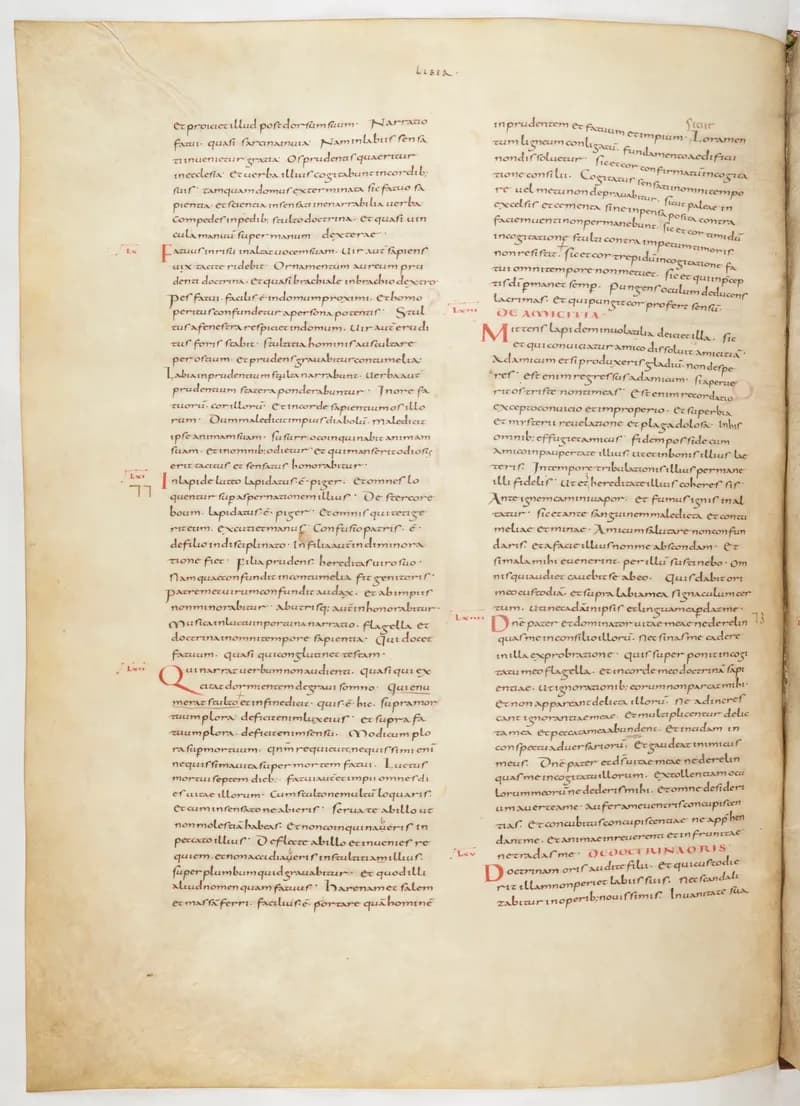 LIBER·
Et proiciet illud post dorsum suum· Narratio
fatui· quasi sarcina in uia· Nam in labiis sensa
ti inuenietur gratia· Os prudentis quaeritur
in ecclesia· Et uerba illius cogitabunt in cordib;
suis· tamquam domus exterminata sic fatuo sa
pientia· et scientia insensati inenarrabilia uerba·
Compedes in pedib; stulto doctrina· Et quasi uin
cula manuū super manum dexterae·
LX·
Fatuus in risu inaltat uocem suam· Uir aut̄ sapiens
uix tacite ridebit· Ornamentum aureum pru
denti doctrina· Et quasi brachiale in brachio dextro·
Pes fatui· facilis ē in domum proximi· Et homo
peritus confundetur a persona potentis· Stul
tus a fenestra respiciet in domum· Uir aut̄ erudi
tus foris stabit· Stultitia hominis auscultare
per ostium· Et prudens grauabitur contumelia·
Labia inprudentium stulta narrabunt· Uerba aut̄
prudentium statera ponderabuntur· In ore fa
tuorū· cor illorū· Et in corde sapientium os illo
rum· Dum maledicit impius diabolū· maledicit
ipse animam suam· susurro coinquinabit animam
suam· Et in omnib; odietur· Et qui manserit odiosus
erit tacitus et sensatus honorabitur·
LXI·
In lapide luteo lapidatus ē piger· Et omnes lo
quentur sup aspernationem illius· De stercore
boum· lapidatus ē piger· Et omnis qui tetige
rit eum· excutiet manus· Confusio patris· ē·
de filio indisciplinato· In filia aut̄ in diminora
tione fiet· Filia prudens· hereditas uiro suo·
Nam quae confundit in contumelia fit genitoris·
Patrem et uirum confundit audax· et ab impiis
non minorabitur· Ab utrisq; aut̄ inhonorabitur·
Musica in luctu inportuna narratio· flagella et
doctrina in omni tempore sapientia· Qui docet
fatuum· quasi qui conglutinet testam·
LXII·
Qui narrat uerbum non audienti· quasi qui ex
citat dormientem de graui somno· Qui enu
merat stulto et in fine dicit· quis ē hic· supra mor
tuum plora· deficit enim lux eius· et supra fa
tuum plora· deficit enim sensu· Modicum plo
ra sup mortuum· qnm̄ requieuit· nequissimi enī
nequissima uita super mortem fatui· Luctus
mortui septem dieb; fatui aut̄ et impii omnes di
es uitae illorum· Cum stulto ne multū loquaris·
Et cum insensato ne abieris· serua te ab illo ut
non molestiā habeas· Et non coinquinaueris in
peccato illius· Deflecte ab illo et inuenies re
quiem· et non acediaueris in stultitiam illius·
super plumbum quid grauabitur· Et quod illi
aliud nomen quam fatuus· Harenam et salem
et massā ferri· facilius ē· portare quā hominē
inprudentem et fatuum et impium· Sicut Loramen
tum ligneum conligatū· fundamento aedificii
non dissoluetur· sic et cor confirmatū in cogita
tione consilii· Cogitatus sensati in omni tempo
re uel metu non deprauabitur· sicut paleae in
excelsis et cementa sine inpensa posita contra
faciem uenti non permanebunt· sic et cor timidū
in cogitatione stulti contra impetum timoris
non resistit· sic et cor trepidū in cogitatione fa
tui omni tempore non metuet· sic et qui in p̄cep
tis dī permanet semp· Pungens oculum deducens
lacrimas· Et qui pungit cor profert sensū·
LXIII·
DE AMICITIA·
Mittens lapidem in uolatilia deiciet illa· sic
et qui conuiciatur amico dissoluit amicitiā·
Ad amicum etsi produxeris gladiū· non despe
res· est enim regressus ad amicum· si aperue
rit os triste non timeas· Est enim recordatio
excepto conuicio et improperio· Et superbia
et mysterii reuelatione et plaga dolosa· In his
omnib; effugiet amicus· fidem posside cum
amico in paupertate illius· ut et in bonis illius lae
teris· In tempore tribulationis illius permane
illi fidelis· Ut et hereditate illius coheres sis·
Ante ignem camini uapor· et fumus ignis inal
tatur· sic et ante sanguinem maledicta et contu
meliae et minae· Amicum salutare non confun
daris· et a facie illius non me abscondam· Et
si mala mihi euenerint· per illū sustinebo· Om
nis qui audiet cauebit se ab eo· Quis dabit ori
meo custodiā· et supra labia mea signaculum cer
tum· ut non cadā in ipsis et lingua mea p̄dat me·
LXIIII·
Dn̄e pater et dominator uitae meae ne derelin
quas me in consilio illorū· Nec sinas me cadere
in illa exprobratione· quis superponit in cogi
tatu meo flagella· et in corde meo doctrinā sapi
entiae· ut ignorationib; eorum non parcat mihi·
Et non appareant delicta illorū· Ne adincres
cant ignorantiae meae· Et multiplicentur delic
ta mea et peccata mea abundent· Et incidam in
conspectu aduersariorū· Et gaudeat inimicus
meus· Dn̄e pater et dī uitae meae ne derelin
quas me in cogitatu illorum· Extollentiam ocu
lorum meorū ne dederis mihi· Et omne desideri
um auerte a me· Aufer a me uentris concupiscen
tias· Et concubitus concupiscentiae ne app̄hen
dant me· Et animae inreuerenti et infrunitae
ne tradas me· DE DOCTRINA ORIS
LXV
Doctrinam oris audite filii· Et qui custodie
rit illam non periet labiis suis· Nec scandali
zabitur in operib; nouissimis· In uanitate sua